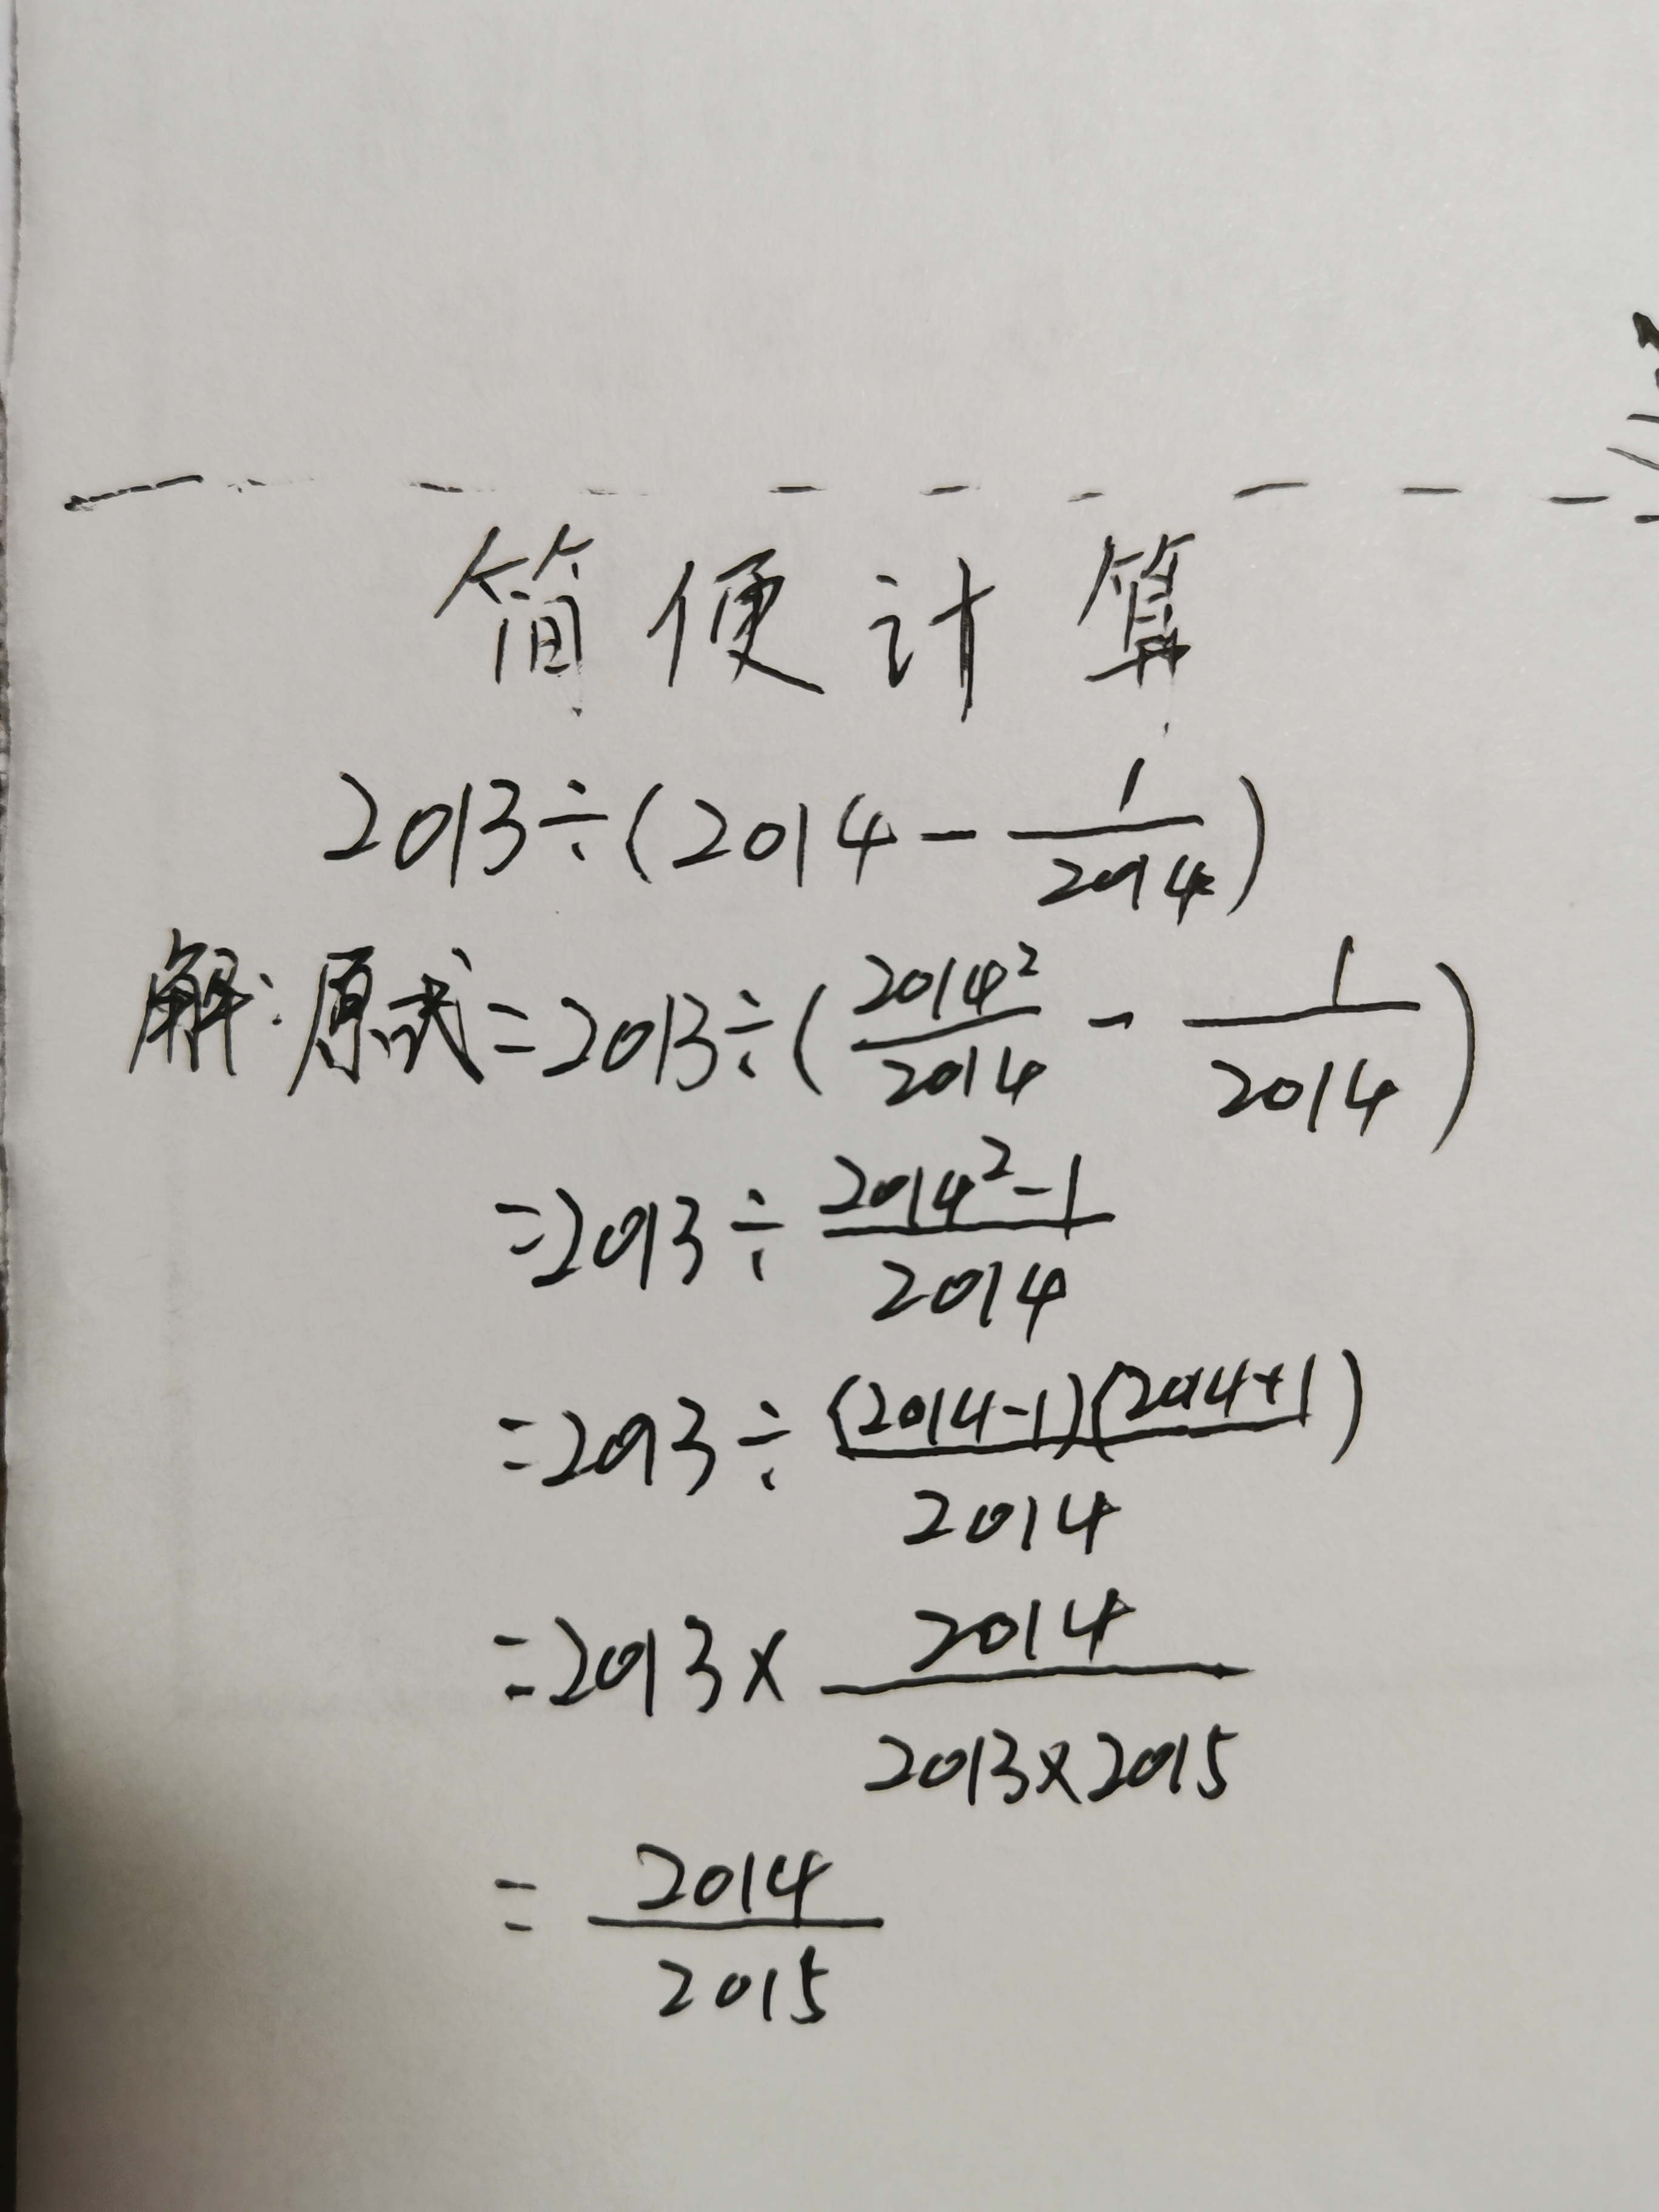 简便计算
2013÷(2014-1/2014)
解:原式=2013÷(2014²/2014-1/2014)
=2013÷(2014²-1)/2014
=2013÷(2014-1)(2014+1)/2014
=2013×2014/2013×2015
=2014/2015